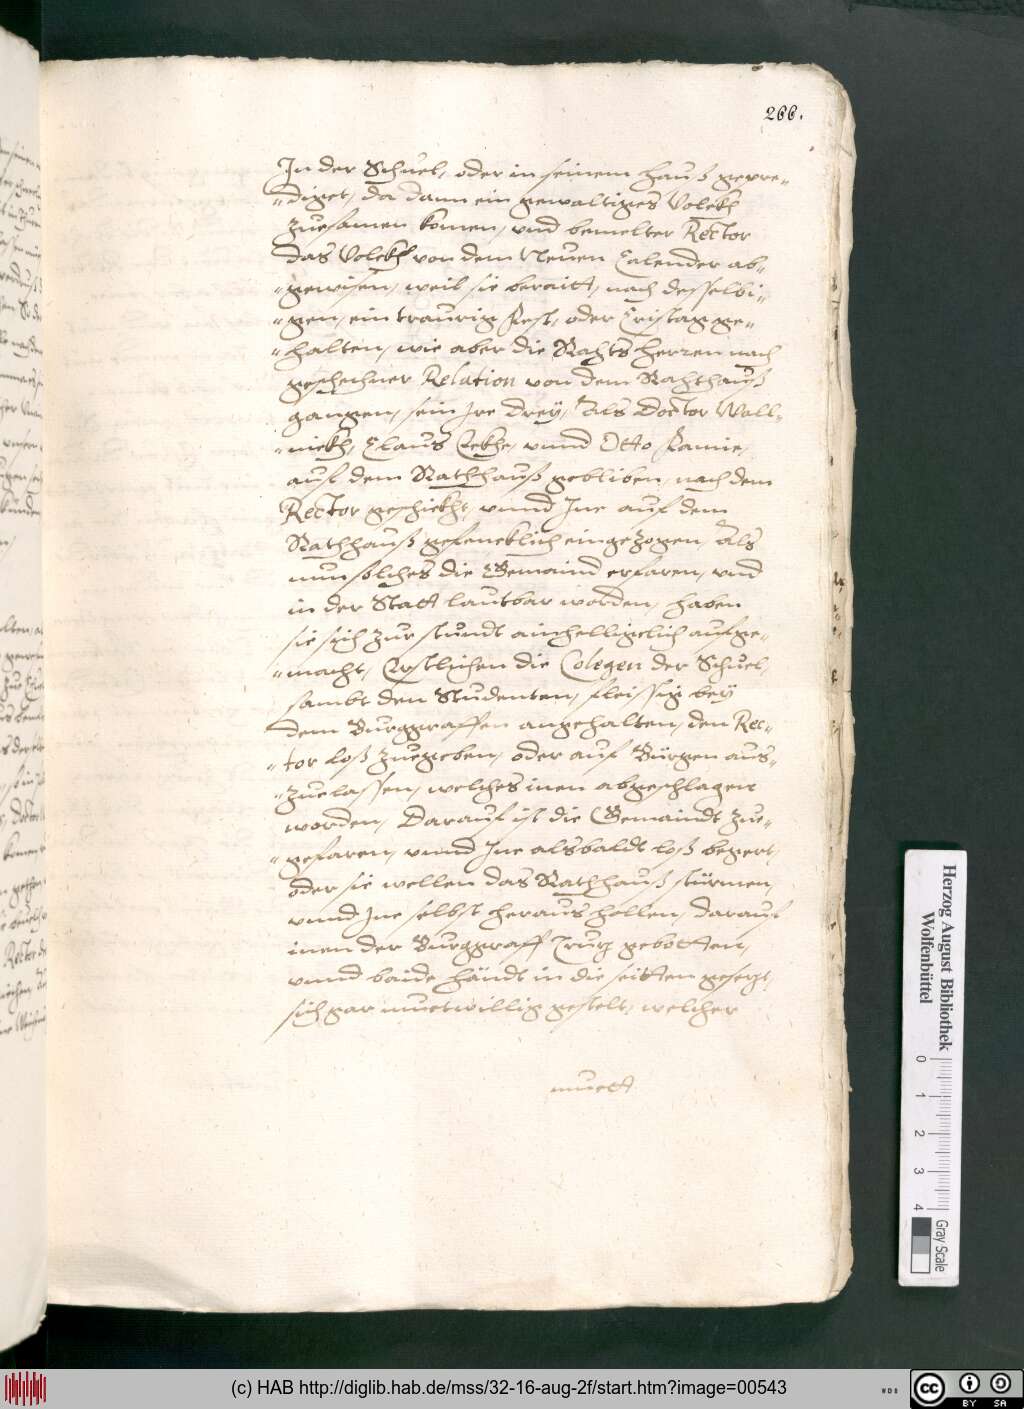 266.
In der Schuel, oder in seinem hauß gepre-
-diget, da dann ein gewaltiges Volckh
zuesamen komen, vnd bemelter Rector
das Volckh von dem Neuen Calender ab-
-gewisen, weil sie beraitt, nach desselbi-
-gen, ein traurig Fest, oder Cristag ge-
-halten, wie aber die Rahts herren nach
geschechner Relation von dem Rahthauß
gangen, sein Jre Drey, Als Doctor Well-
-nickh, Claus Eckhe, vnnd Otto Kanne,
auf dem Rathhauß gebliben, nach dem
Rector geschickht, vnnd Jne auf dem
Rathhauß gefencklich eingezogen, Als
nun solches die Gemaind erfaren, vnd
in der Statt lautbar worden, haben
sie sich zur stundt ainhelligclich aufge-
-macht, Erstlichen die Colegen der Schuel,
sambt den Studenten, fleissig bey
dem Burggraffen angehalten, den Rec-
-tor loß zuegeben, oder auf Bürgen aus-
-zuelassen, welches inen abgeschlagen
worden, Darauf ist die Gemaindt zue-
-gefaren, vnnd Jne alsbaldt loß begert,
oder sie wellen das Rathhauß stürmen,
vnnd Jne selbst heraus hollen, darauf
inen der Burggraff Truz gebotten,
vnnd baide händt in die seitten gesezt,
sich gar muetwillig gestelt, welcher
muett
Herzog August Bibliothek
Wolfenbüttel
0 1 2 3 4
Gray Scale
(c) HAB http://diglib.hab.de/mss/32-16-aug-2f/start.htm?image=00543
WDB
cc BY SA